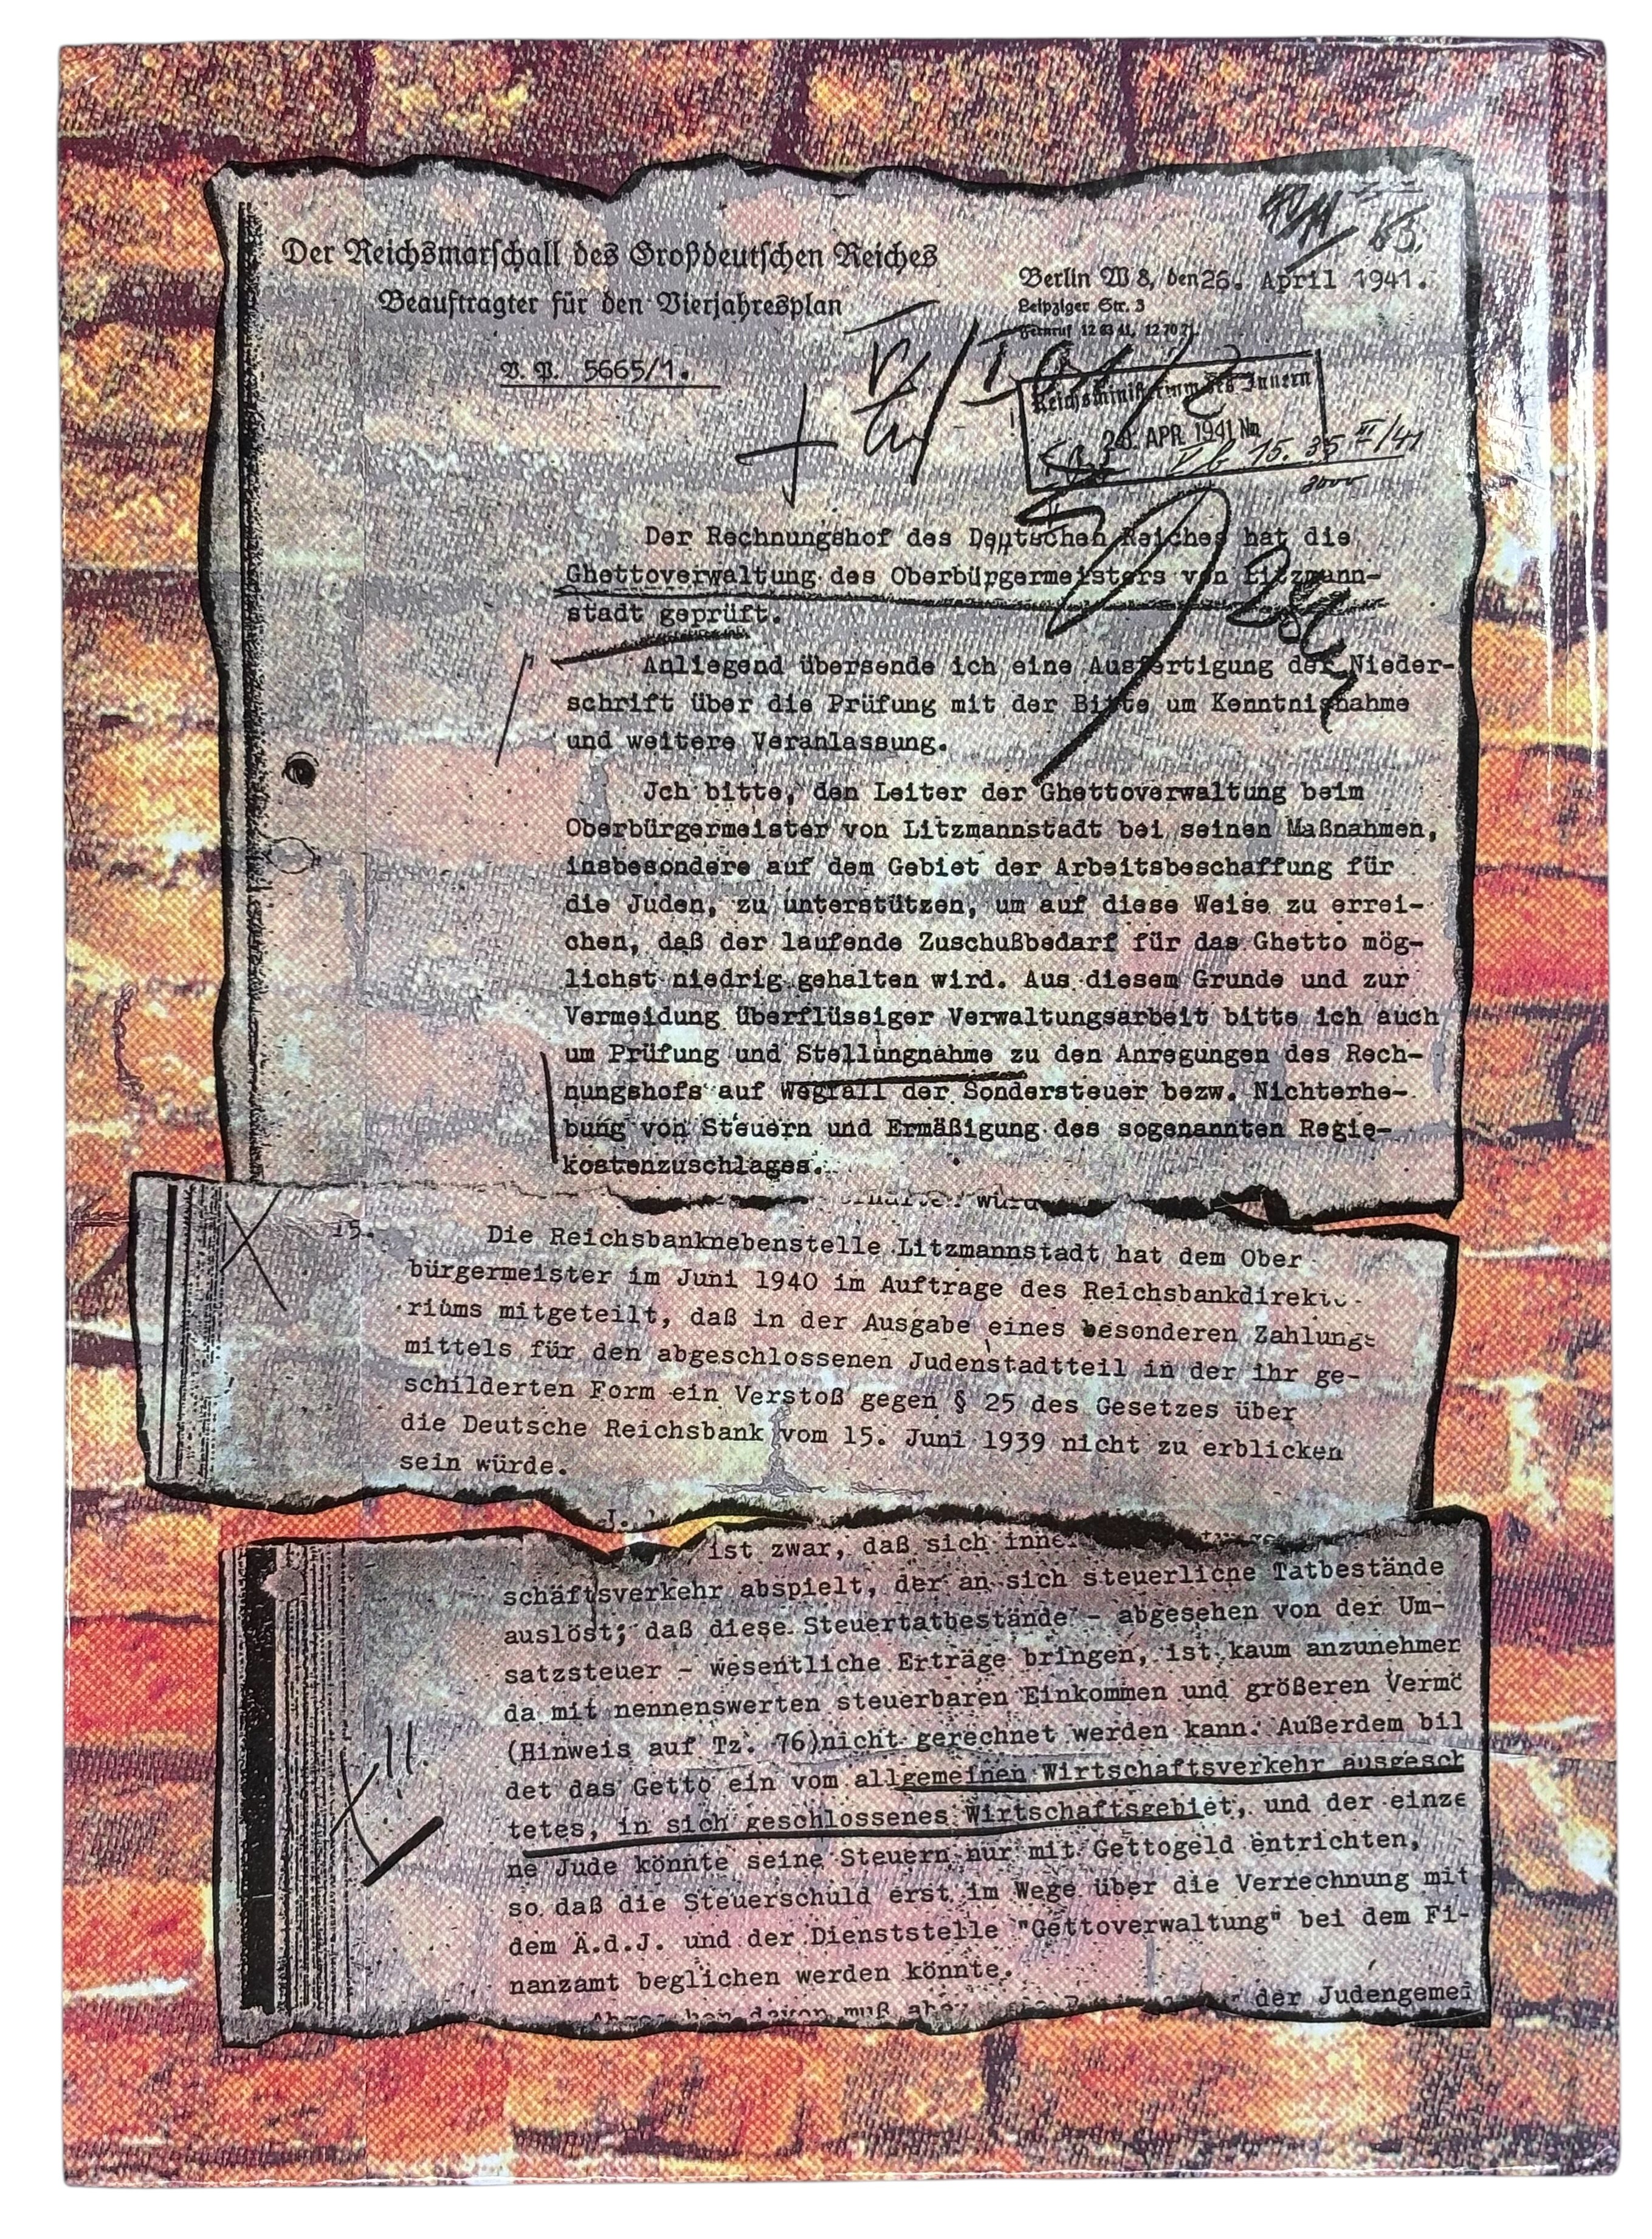 Der Reichsmarschall des Großdeutschen Reiches
Beauftragter für den Vierjahresplan
V. P. 5665/1.
Berlin W 8, den 26. April 1941.
Leipziger Str. 3
Fernruf 12 63 41, 12 70 71.
Reichsministerium des Innern
28. APR. 1941 Nm
Der Rechnungshof des Deutschen Reiches hat die
Ghettoverwaltung des Oberbürgermeisters von Litzmann-
stadt geprüft.
Anliegend übersende ich eine Ausfertigung der Nieder-
schrift über die Prüfung mit der Bitte um Kenntnisnahme
und weitere Veranlassung.
Jch bitte, den Leiter der Ghettoverwaltung beim
Oberbürgermeister von Litzmannstadt bei seinen Maßnahmen,
insbesondere auf dem Gebiet der Arbeitsbeschaffung für
die Juden, zu unterstützen, um auf diese Weise zu errei-
chen, daß der laufende Zuschußbedarf für das Ghetto mög-
lichst niedrig gehalten wird. Aus diesem Grunde und zur
Vermeidung überflüssiger Verwaltungsarbeit bitte ich auch
um Prüfung und Stellungnahme zu den Anregungen des Rech-
nungshofs auf Wegfall der Sondersteuer bezw. Nichterhe-
bung von Steuern und Ermäßigung des sogenannten Regie-
kostenzuschlages.
15. Die Reichsbanknebenstelle Litzmannstadt hat dem Ober
bürgermeister im Juni 1940 im Auftrage des Reichsbankdirekto-
riums mitgeteilt, daß in der Ausgabe eines besonderen Zahlungs
mittels für den abgeschlossenen Judenstadtteil in der ihr ge-
schilderten Form ein Verstoß gegen § 25 des Gesetzes über
die Deutsche Reichsbank vom 15. Juni 1939 nicht zu erblicken
sein würde.
ist zwar, daß sich
schäftsverkehr abspielt, der an sich steuerliche Tatbestände
auslöst; daß diese Steuertatbestände - abgesehen von der Um-
satzsteuer - wesentliche Erträge bringen, ist kaum anzunehmen
da mit nennenswerten steuerbaren Einkommen und größeren Vermö
(Hinweis auf Tz. 76)nicht gerechnet werden kann. Außerdem bil
det das Getto ein vom allgemeinen Wirtschaftsverkehr ausgesch
tetes, in sich geschlossenes Wirtschaftsgebiet, und der einze
ne Jude könnte seine Steuern nur mit Gettogeld entrichten,
so daß die Steuerschuld erst im Wege über die Verrechnung mit
dem Ä.d.J. und der Dienststelle "Gettoverwaltung" bei dem Fi-
nanzamt beglichen werden könnte.
der Judengemei